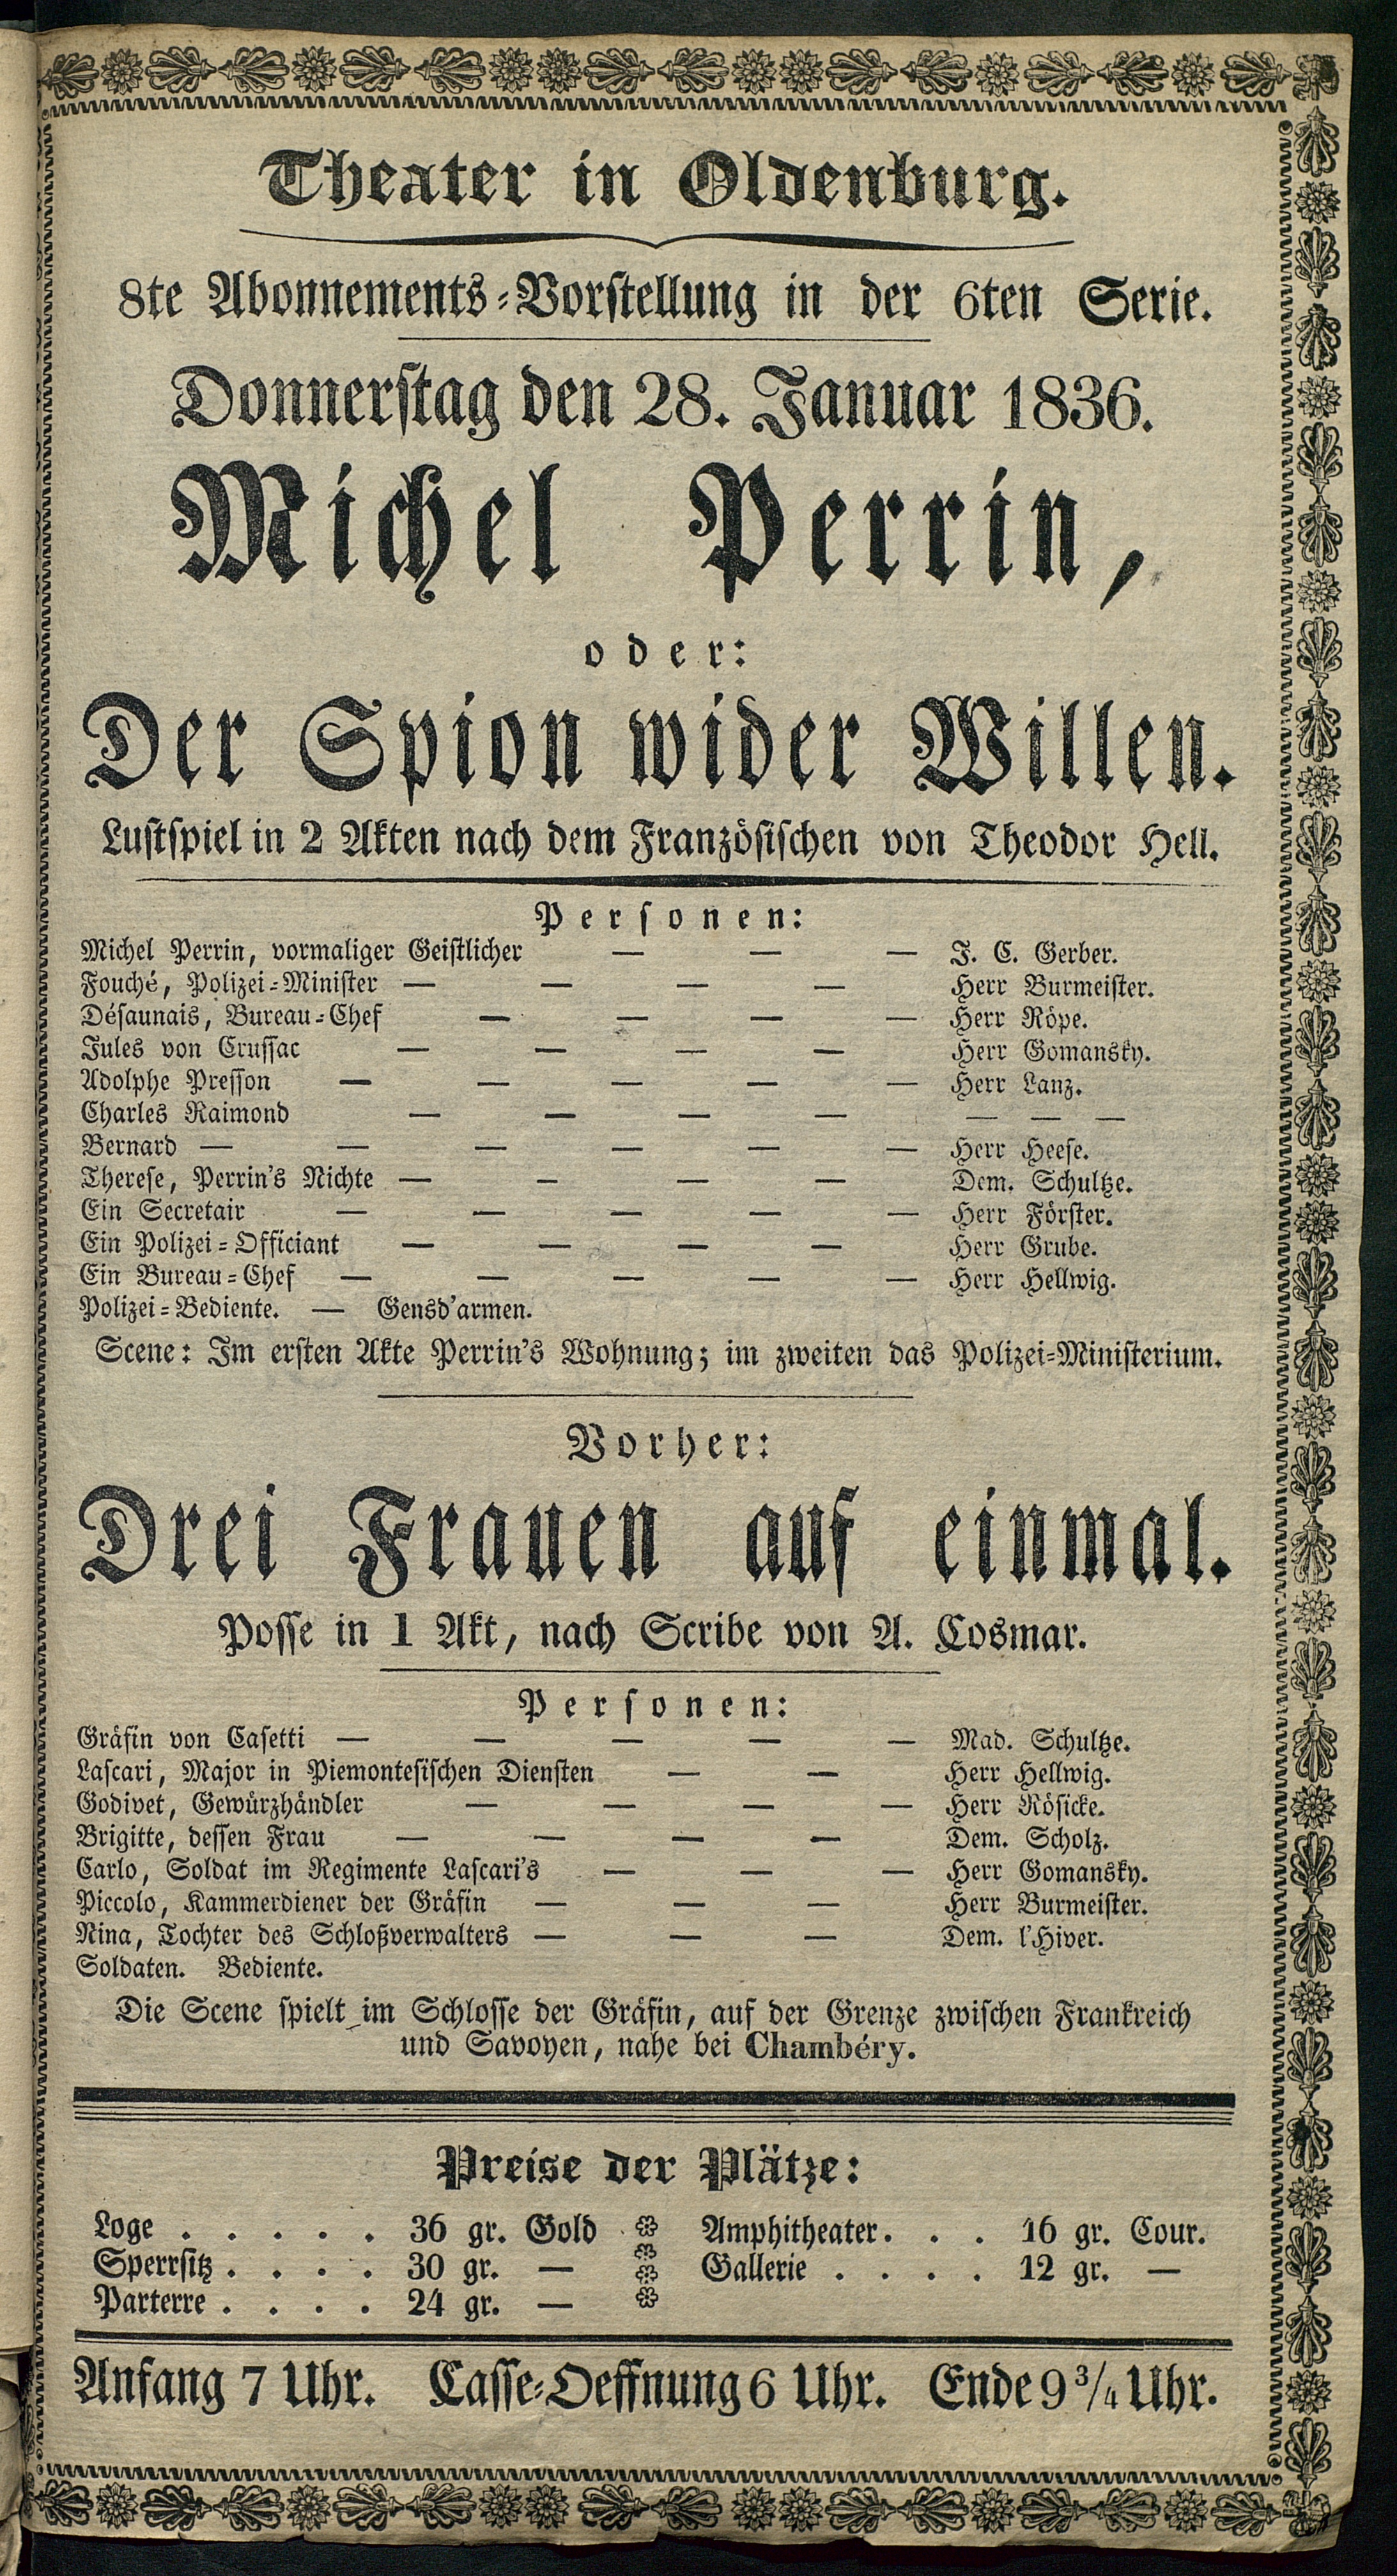 Theater in Oldenburg.
8te Abonnements-Vorstellung in der 6ten Serie.
Donnerstag den 28. Januar 1836.
Michel Perrin,
oder:
Der Spion wider Willen.
Lustspiel in 2 Akten nach dem Französischen von Theodor Hell.
Personen:
Michel Perrin, vormaliger Geistlicher — — — J. C. Gerber.
Fouché, Polizei-Minister — — — — Herr Burmeister.
Désaunais, Bureau-Chef — — — — Herr Röpe.
Jules von Crussac — — — — Herr Gomansky.
Adolphe Presson — — — — — Herr Lanz.
Charles Raimond — — — — — — —
Bernard — — — — — — Herr Heese.
Therese, Perrin's Nichte — — — — Dem. Schultze.
Ein Secretair — — — — — Herr Förster.
Ein Polizei-Officiant — — — — Herr Grube.
Ein Bureau-Chef — — — — — Herr Hellwig.
Polizei-Bediente. — Gensd'armen.
Scene: Im ersten Akte Perrin's Wohnung; im zweiten das Polizei-Ministerium.
Vorher:
Drei Frauen auf einmal.
Posse in 1 Akt, nach Scribe von A. Cosmar.
Personen:
Gräfin von Casetti — — — — — Mad. Schultze.
Lascari, Major in Piemontesischen Diensten — — Herr Hellwig.
Godivet, Gewürzhändler — — — — Herr Rösicke.
Brigitte, dessen Frau — — — — Dem. Scholz.
Carlo, Soldat im Regimente Lascari's — — — Herr Gomansky.
Piccolo, Kammerdiener der Gräfin — — — Herr Burmeister.
Nina, Tochter des Schloßverwalters — — — Dem. l'Hiver.
Soldaten. Bediente.
Die Scene spielt im Schlosse der Gräfin, auf der Grenze zwischen Frankreich
und Savoyen, nahe bei Chambéry.
Preise der Plätze:
Loge . . . . . 36 gr. Gold
Sperrsitz . . . . 30 gr. —
Parterre . . . . 24 gr. —
Amphitheater. . . 16 gr. Cour.
Gallerie . . . . 12 gr. —
Anfang 7 Uhr. Casse-Oeffnung 6 Uhr. Ende 9 3/4 Uhr.